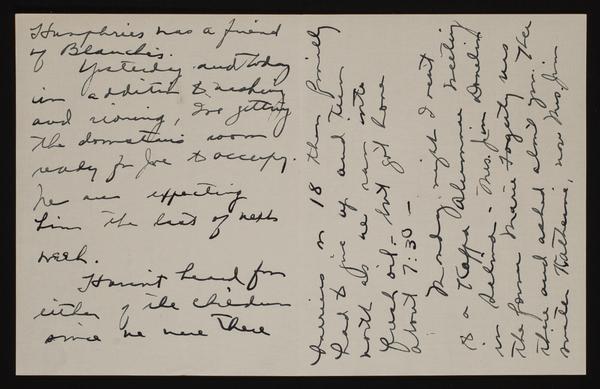 Humphries was a friend
of Blanche's.
Yesterday and today
in addition to washing
and ironing, I'm getting
the downstairs room
ready for Joe to occupy.
We are expecting
him the last of next
week.
Haven't heard from
either of the children
since we were there
on 18 then finally
had to give up and turn
north as we ran into
fresh oil - but got home
about 7:30 -
Monday night I went
to a Kappa Alumnae meeting
in Salina - Mrs. Jim
the former Marie Fogarty was
there and asked about you. Her
sister Katherine, now Mrs. Jim